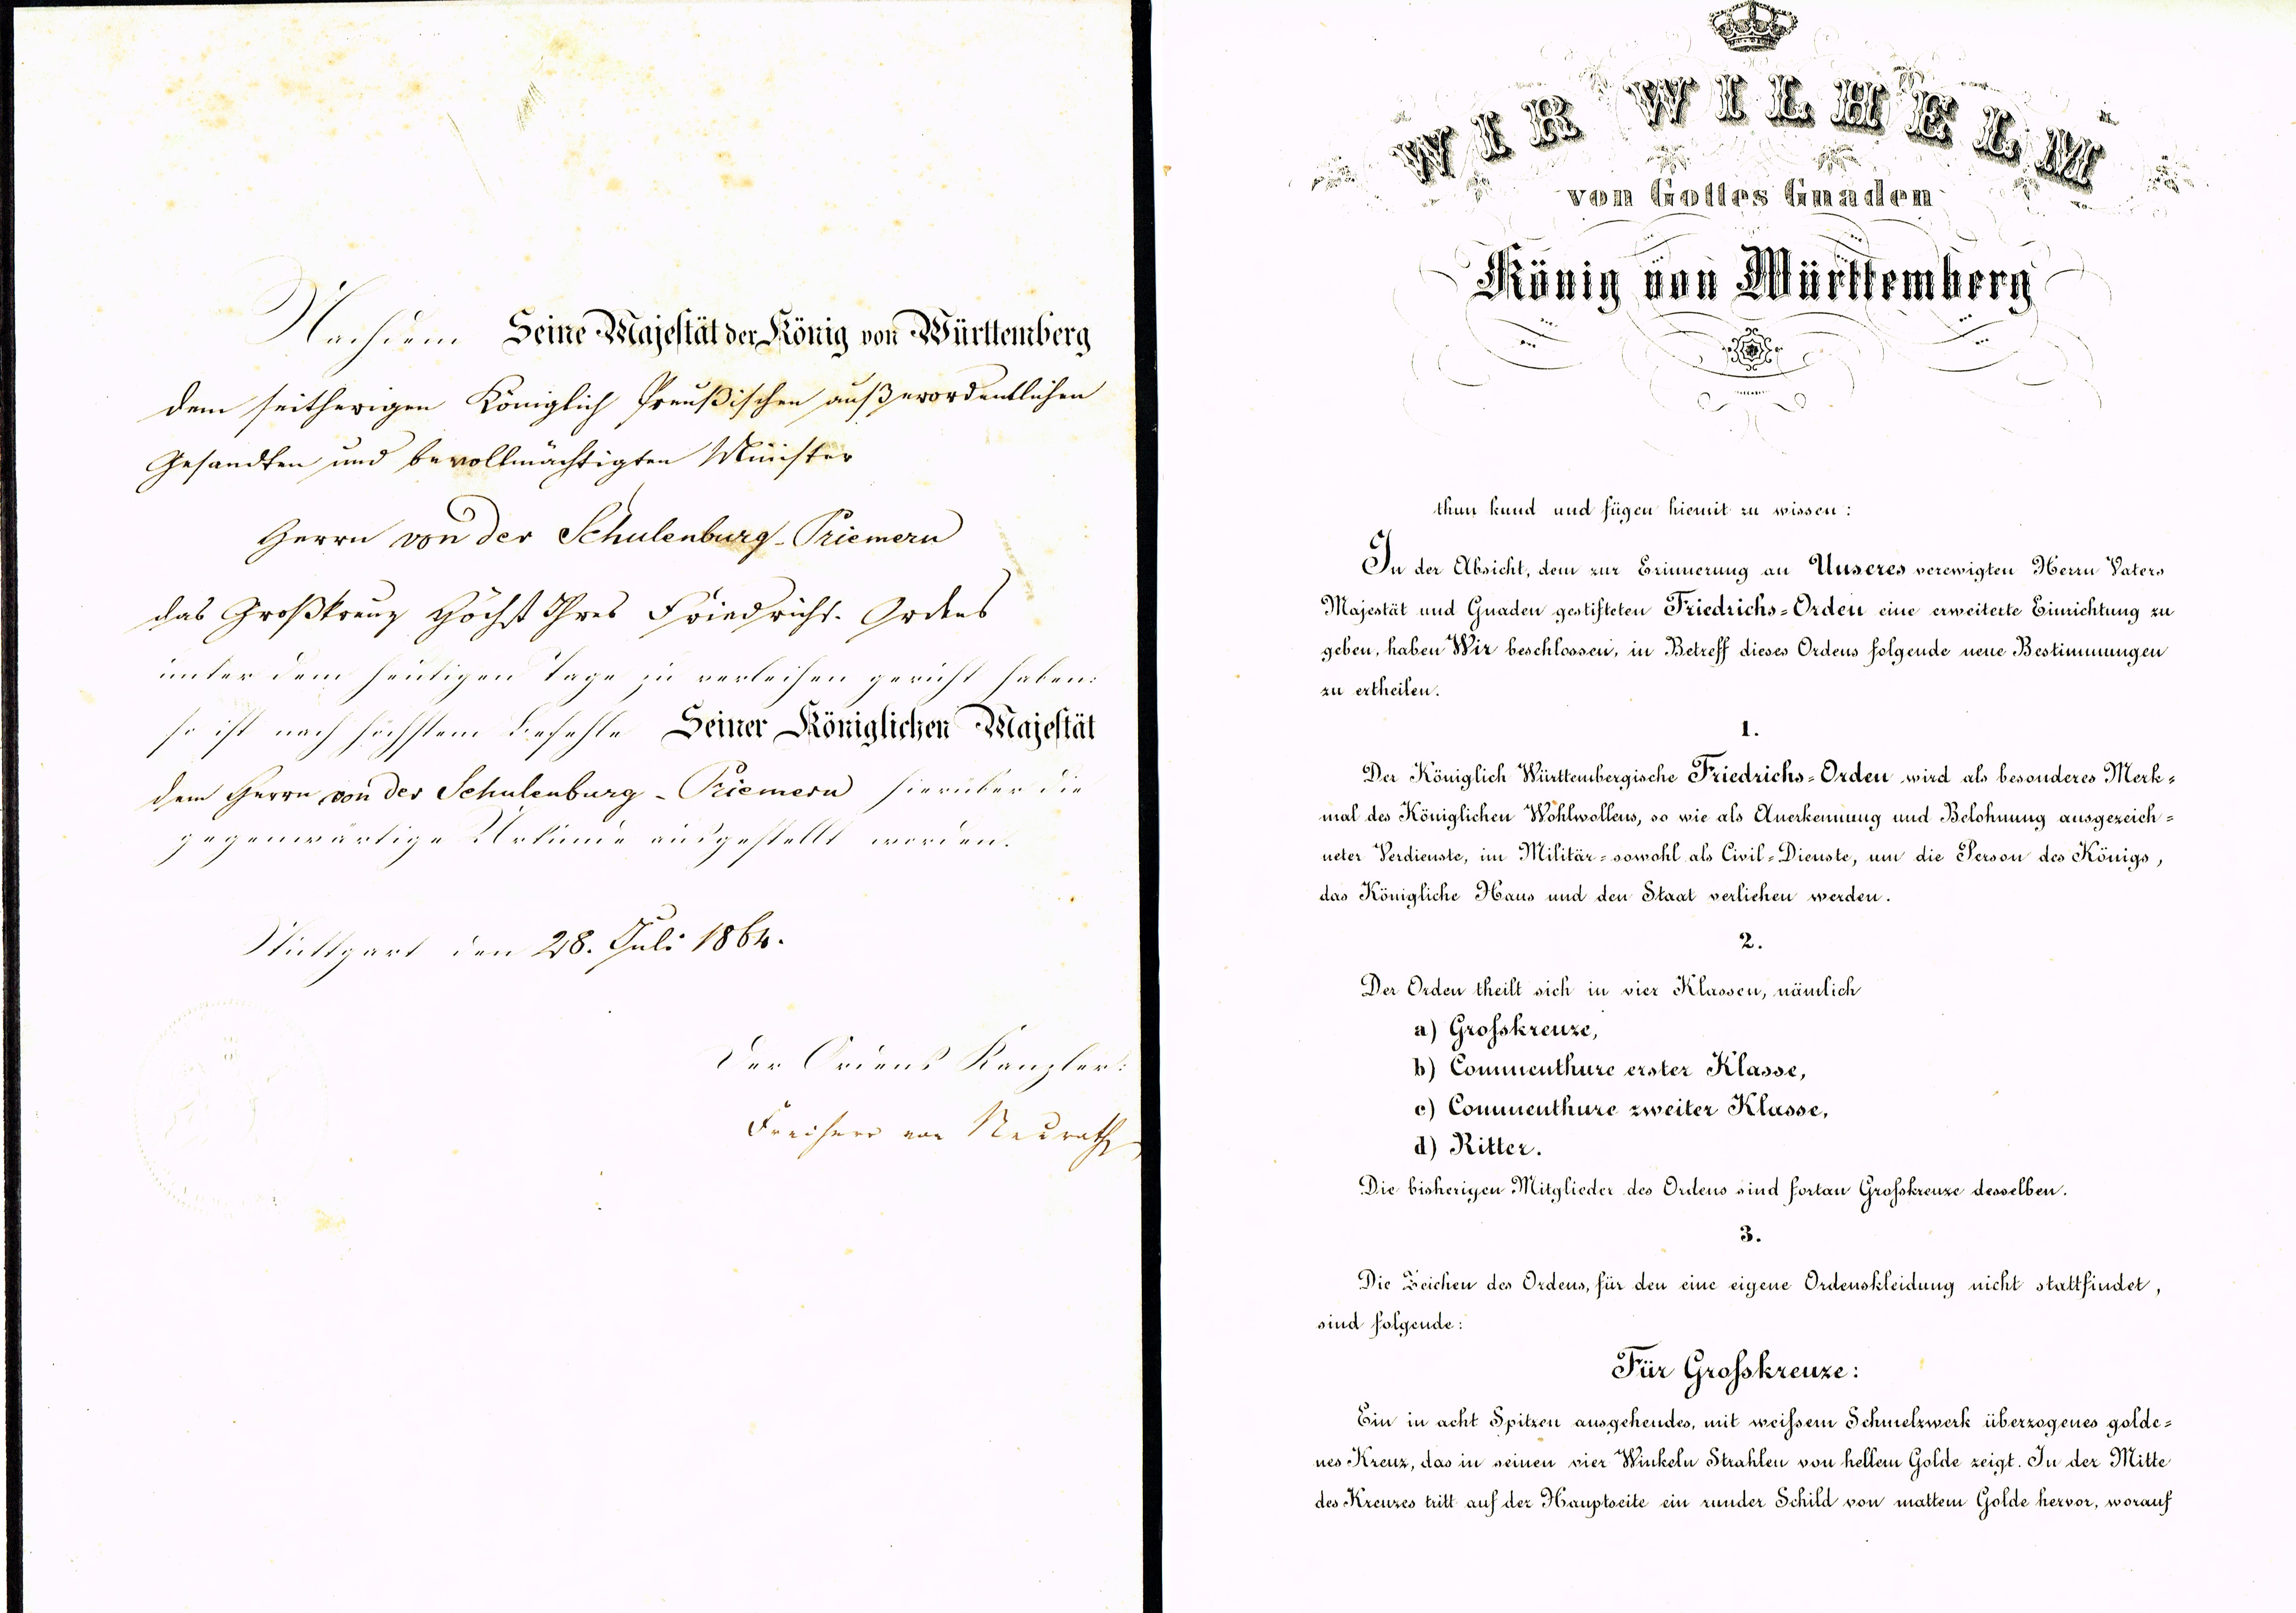 Nachdem Seine Majestät der König von Württemberg
dem seitherigen Königlich Preußischen außerordentlichen
Gesandten und bevollmächtigten Minister
Herrn von der Schulenburg-Priemern
das Großkreuz Höchst Ihres Friedrichs-Ordens
unter dem heutigen Tage zu verleihen geruht haben:
so ist nach höchstem Befehle Seiner Königlichen Majestät
dem Herrn von der Schulenburg-Priemern hierüber die
gegenwärtige Urkunde ausgestellt worden.
Stuttgart den 28. Juli 1864.
Der Ordens Kanzler:
Freiherr von Neurath
WIR WILHELM
von Gottes Gnaden
König von Württemberg
thun kund und fügen hiemit zu wissen:
In der Absicht, dem zur Erinnerung an Unseres verewigten Herrn Vaters
Majestät und Gnaden gestifteten Friedrichs=Orden eine erweiterte Einrichtung zu
geben, haben Wir beschlossen, in Betreff dieses Ordens folgende neue Bestimmungen
zu ertheilen.
1.
Der Königlich Württembergische Friedrichs=Orden wird als besonderes Merk=
mal des Königlichen Wohlwollens, so wie als Anerkennung und Belohnung ausgezeich=
neter Verdienste, im Militär=sowohl als Civil=Dienste, um die Person des Königs,
das Königliche Haus und den Staat verliehen werden.
2.
Der Orden theilt sich in vier Klassen, nämlich
a) Grofskreuze,
b) Commenthure erster Klasse,
c) Commenthure zweiter Klasse,
d) Ritter.
Die bisherigen Mitglieder des Ordens sind fortan Grofskreuze desselben.
3.
Die Zeichen des Ordens, für den eine eigene Ordenskleidung nicht stattfindet,
sind folgende:
Für Grofskreuze:
Ein in acht Spitzen ausgehendes, mit weifsem Schmelzwerk überzogenes golde=
nes Kreuz, das in seinen vier Winkeln Strahlen von hellem Golde zeigt. In der Mitte
des Kreuzes tritt auf der Hauptseite ein runder Schild von mattem Golde hervor, worauf